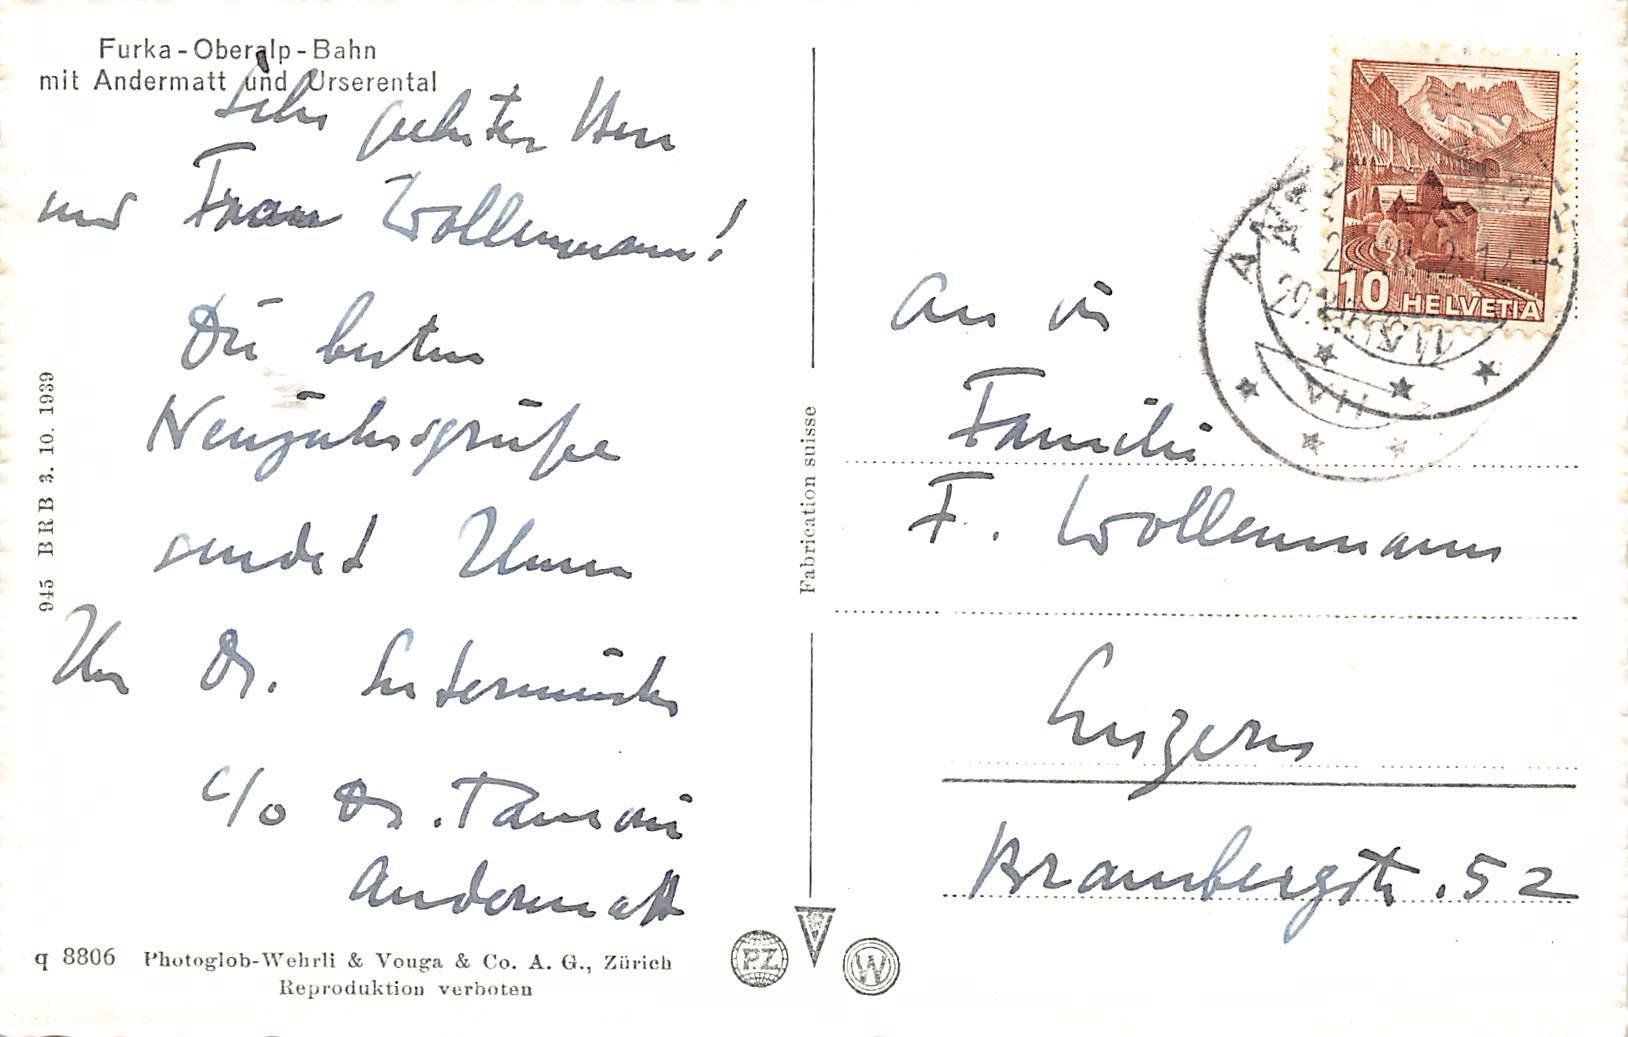 Furka-Oberalp-Bahn
mit Andermatt und Urserental
Sehr geehrter Herr
und Frau Wollenmann!
Die besten
Neujahrsgrüße
sendet Ihnen
Ihr Dr.
c/o Dr.
Andermatt
945 BRB 3. 10. 1939
q 8806 Photoglob-Wehrli & Vouga & Co. A. G., Zürich
Reproduktion verboten
Fabrication suisse
PZ
W
10 HELVETIA
An die
Familie
F. Wollenmann
Luzern
Brambergstr. 52